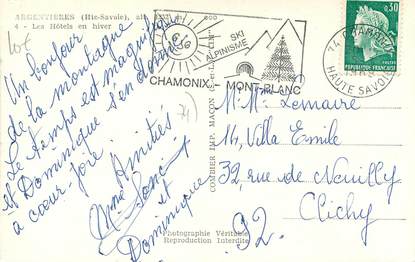 ARGENTIERES (Hte-Savoie), alt.
4 - Les Hôtels en hiver
Un bonjour
de la montagne
Le temps est magnifique
et Dominique s'en donne
à coeur joie.
Amitiés
et
Dominique
SKI
ALPINISME
CHAMONIX - MONT-BLANC
74 CHAMONIX
HAUTE SAVOIE
0,30
REPUBLIQUE FRANCAISE
COMBIER IMP. MACON
Photographie Véritable
Reproduction Interdite
M. Mme Lemaire
14, Villa Emile
32, rue de Neuilly
Clichy
92.